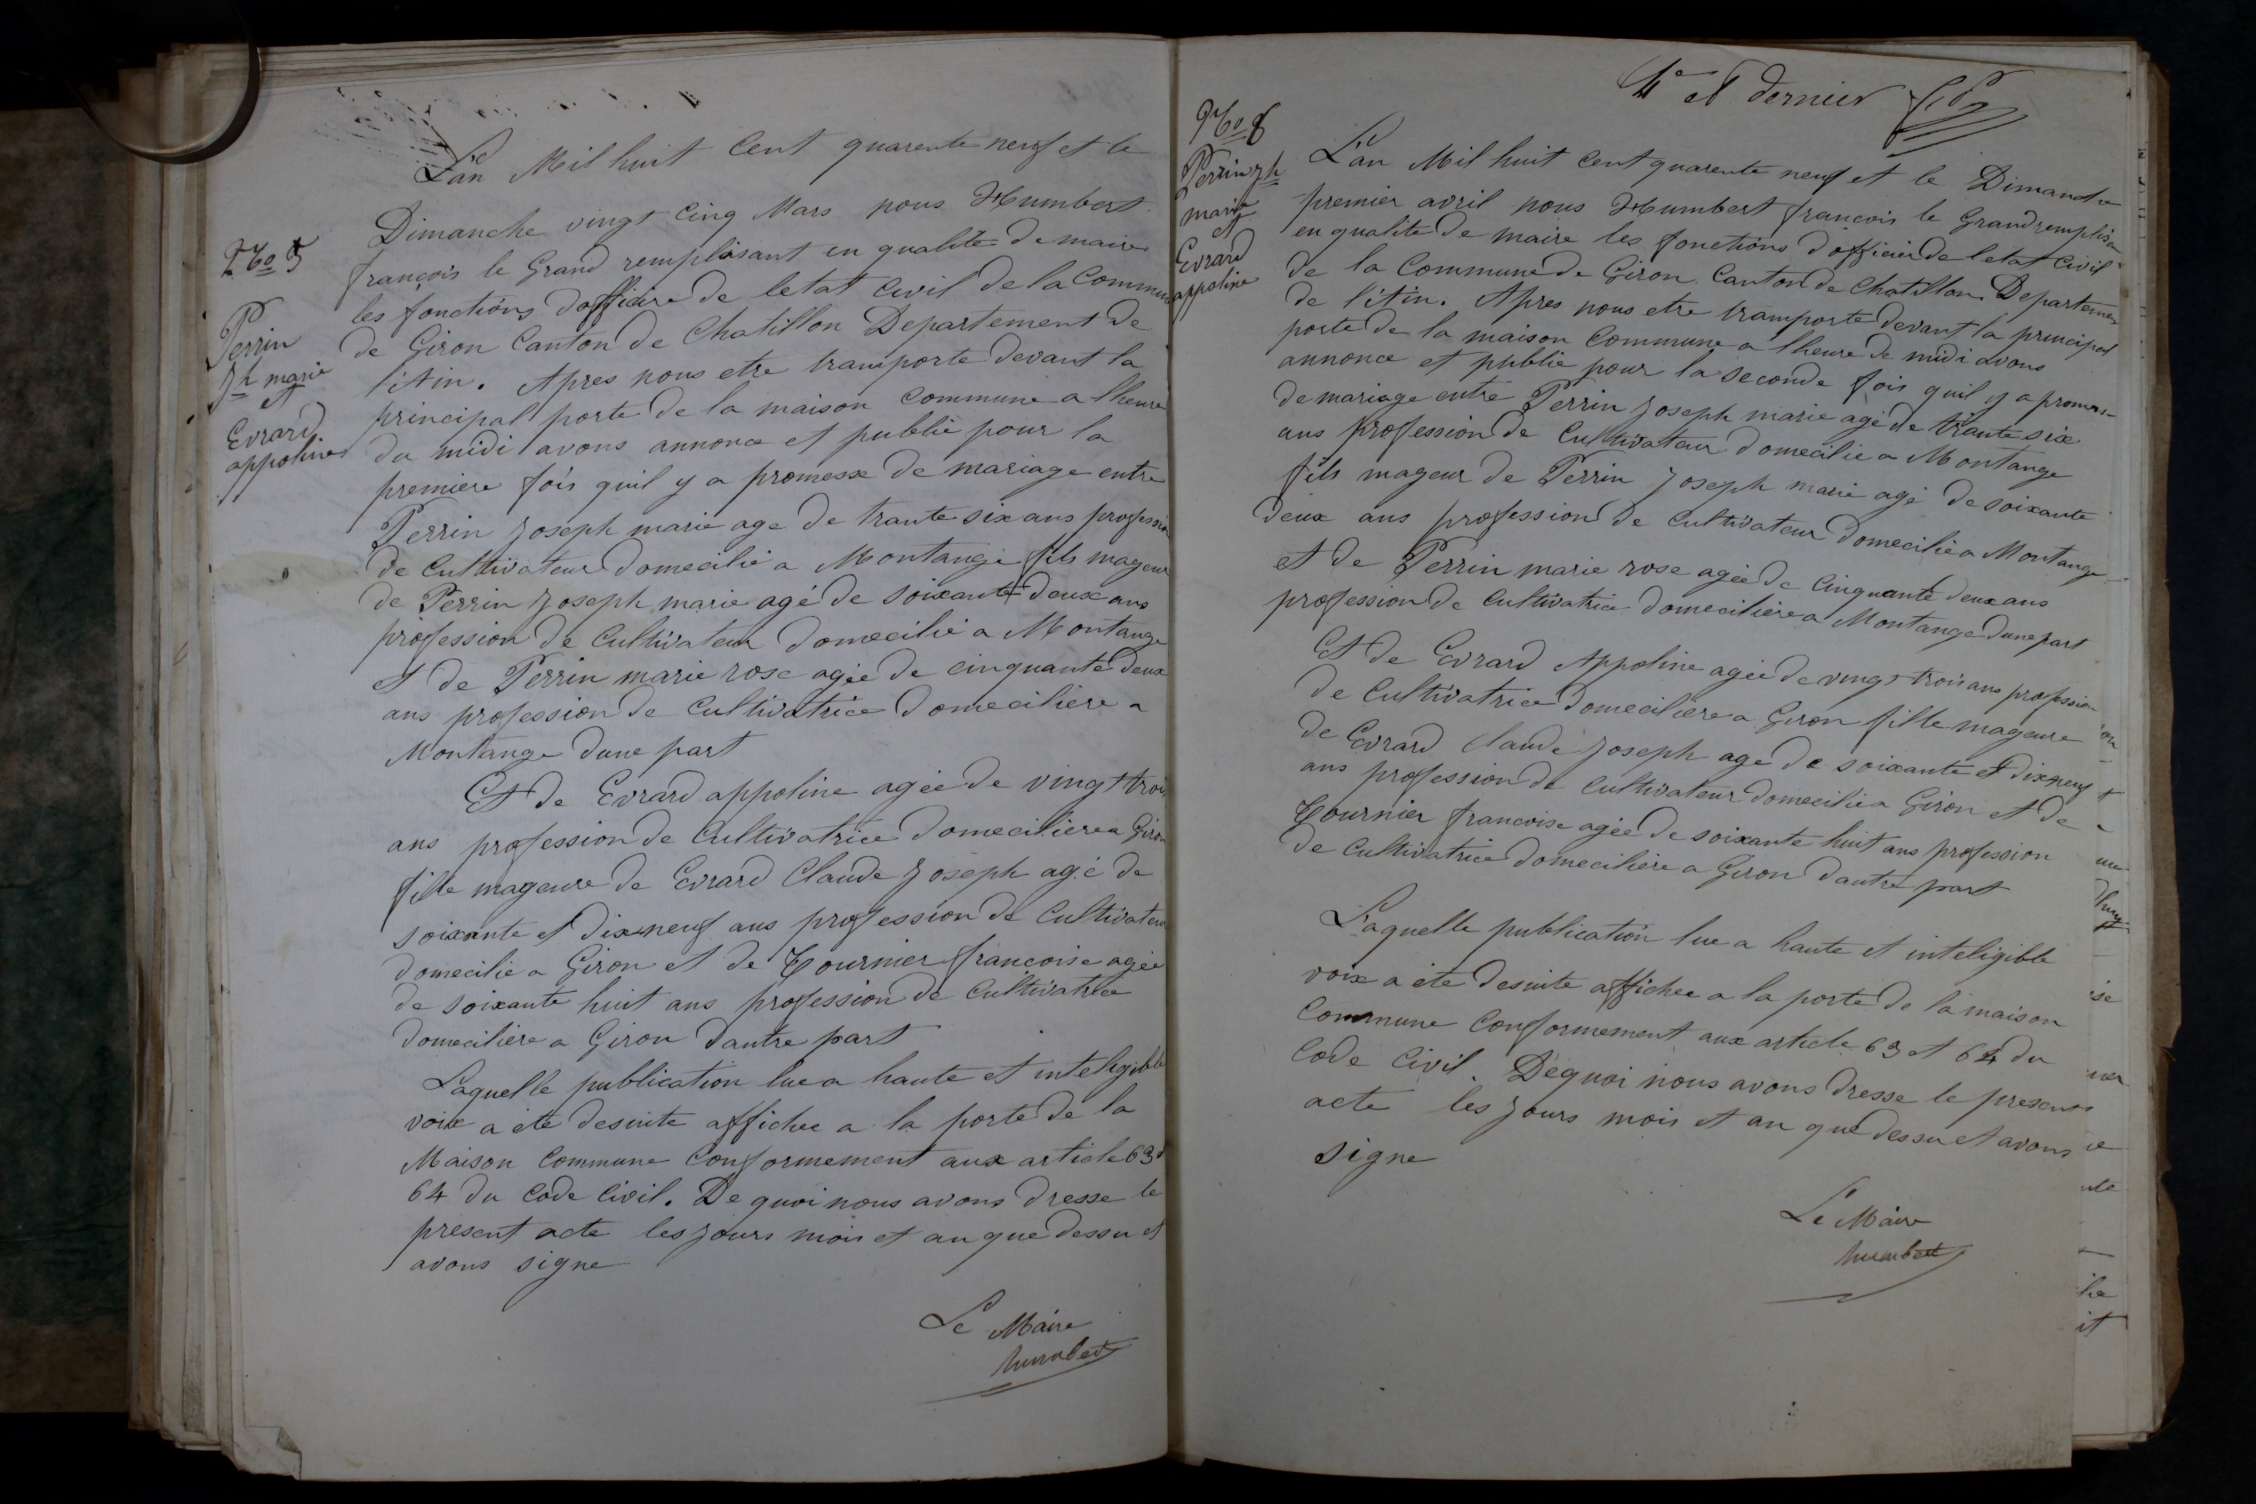 No 5
Perrin
Jh marie
et
Evrard
appoline
L'an Mil huit Cent quarente neuf et le
Dimanche vingt cinq Mars nous Humbert
françois le Grand remplisant en qualité de maire
les fonctions dofficier de letat Civil de la Commune
de Giron Canton de Chatillon Departement de
l'Ain. Apres nous etre transporte devant la
principal porte de la maison Commune a lheure
du midi avons annonce et publié pour la
premiere fois quil y a promesse de mariage entre
Perrin Joseph marie age de trante six ans profession
de Cultivateur domecilié a Montange fils mageur
de Perrin Joseph marie agé de soixante deux ans
profession de Cultivateur domecilié a Montange
et de Perrin marie rose agée de cinquante deux
ans profession de Cultivatrice domeciliere a
Montange dune part
Et de Evrard appoline agée de vingt trois
ans profession de Cultivatrice domeciliere a Giron
fille mageure de Evrard Claude Joseph agé de
soixante et dix neuf ans profession de Cultivateur
domecilié a Giron et de Tournier francoise agée
de soixante huit ans profession de Cultivatrice
domeciliere a Giron dautre part
Laquelle publication lue a haute et inteligible
voix a été desuite affichee a la porte de la
Maison Commune Conformement aux article 63 et
64 du Code Civil. De quoi nous avons dresse le
present acte les jours mois et an que dessu et
avons signe
Le Maire
humbert
4e et dernier
No 6
Perrin Jh
marie
et
Evrard
appoline
L'an Mil huit Cent quarente neuf et le Dimanche
premier avril nous Humbert francois le Grand remplisan
en qualite de maire les fonctions dofficier de letat Civil
de la Commune de Giron Canton de Chatillon Departement
de l'Ain. Apres nous etre transporte devant la principal
porte de la maison Commune a lheure de midi avons
annonce et publie pour la seconde fois quil y a promesse
de mariage entre Perrin Joseph marie agé de trante six
ans profession de Cultivateur domecilié a Montange
fils mageur de Perrin Joseph marie agé de soixante
deux ans profession de Cultivateur domecilié a Montange
et de Perrin marie rose agée de Cinquante deux ans
profession de Cultivatrice domeciliere a Montange dune part
Et de Evrard Appoline agée de vingt trois ans profession
de Cultivatrice domeciliere a Giron fille mageure
de Evrard Claude Joseph age de soixante et dix neuf
ans profession de Cultivateur domecilié a Giron et de
Tournier francoise agée de soixante huit ans profession
de Cultivatrice domeciliere a Giron dautre part
Laquelle publication lue a haute et inteligible
voix a été desuite affichee a la porte de la maison
Commune Conformement aux article 63 et 64 du
Code Civil. Dequoi nous avons dresse le present
acte les jours mois et an que dessu et avons
signe
Le Maire
humbert